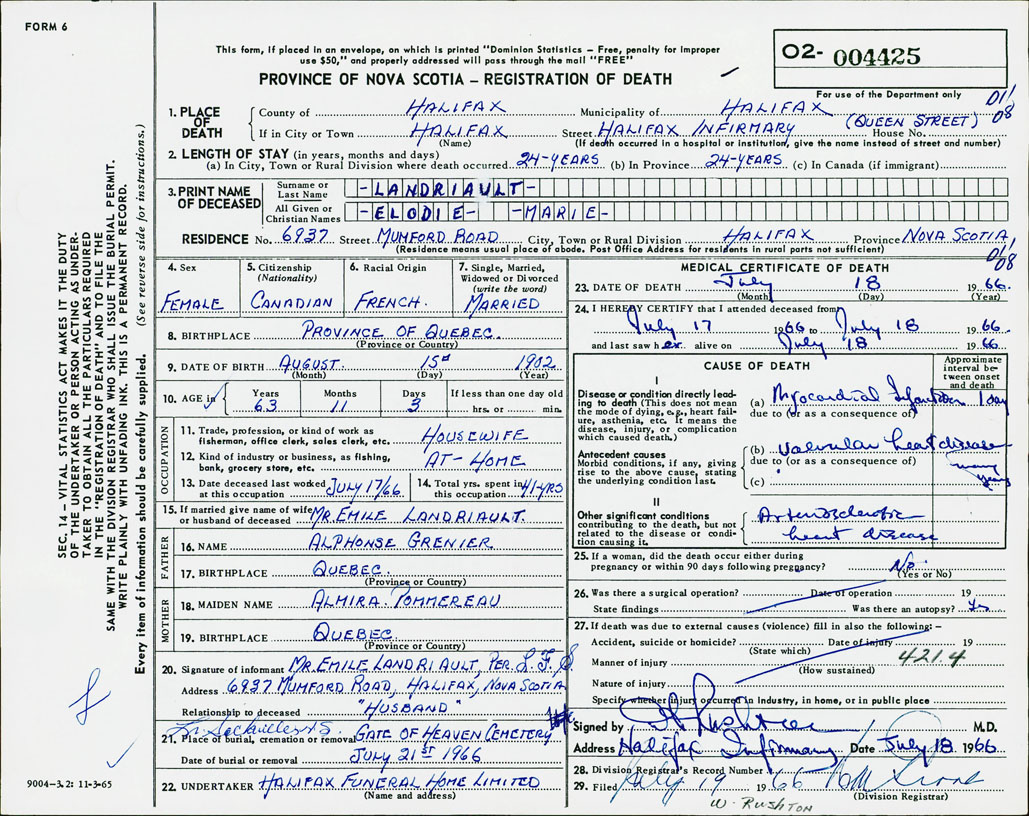 FORM 6
This form, if placed in an envelope, on which is printed "Dominion Statistics – Free, penalty for improper
use $50," and properly addressed will pass through the mail "FREE"
PROVINCE OF NOVA SCOTIA – REGISTRATION OF DEATH
02- 004425
For use of the Department only
011
08
SEC. 14 – VITAL STATISTICS ACT MAKES IT THE DUTY
OF THE UNDERTAKER OR PERSON ACTING AS UNDER-
TAKER TO OBTAIN ALL THE PARTICULARS REQUIRED
IN THE "REGISTRATION OF DEATH" AND TO FILE THE
SAME WITH THE DIVISION REGISTRAR WHO SHALL ISSUE THE BURIAL PERMIT.
WRITE PLAINLY WITH UNFADING INK. THIS IS A PERMANENT RECORD.
Every item of information should be carefully supplied. (See reverse side for instructions.)
1. PLACE OF DEATH
County of HALIFAX Municipality of HALIFAX
If in City or Town HALIFAX Street HALIFAX INFIRMARY (QUEEN STREET) House No.
(Name) (If death occurred in a hospital or institution, give the name instead of street and number)
2. LENGTH OF STAY (in years, months and days)
(a) In City, Town or Rural Division where death occurred 24-YEARS (b) In Province 24-YEARS (c) In Canada (if immigrant)
3. PRINT NAME OF DECEASED
Surname or Last Name -LANDRIAULT-
All Given or Christian Names -ELODIE- -MARIE-
RESIDENCE No. 6937 Street MUMFORD ROAD City, Town or Rural Division HALIFAX Province NOVA SCOTIA
(Residence means usual place of abode. Post Office Address for residents in rural parts not sufficient)
011
08
4. Sex FEMALE
5. Citizenship (Nationality) CANADIAN
6. Racial Origin FRENCH.
7. Single, Married, Widowed or Divorced (write the word) MARRIED
8. BIRTHPLACE PROVINCE OF QUEBEC.
(Province or Country)
9. DATE OF BIRTH AUGUST. 15 1902
(Month) (Day) (Year)
10. AGE in Years 63 Months 11 Days 3 If less than one day old hrs. or min.
OCCUPATION
11. Trade, profession, or kind of work as fisherman, office clerk, sales clerk, etc. HOUSEWIFE
12. Kind of industry or business, as fishing, bank, grocery store, etc. AT-HOME
13. Date deceased last worked at this occupation JULY 17/66
14. Total yrs. spent in this occupation 41-YRS
15. If married give name of wife or husband of deceased MR. EMILE LANDRIAULT.
FATHER
16. NAME ALPHONSE GRENIER
17. BIRTHPLACE QUEBEC.
(Province or Country)
MOTHER
18. MAIDEN NAME ALMIRA. POMMEREAU
19. BIRTHPLACE QUEBEC.
(Province or Country)
20. Signature of informant MR. EMILE LANDRIAULT, PER. L. F. S
Address 6937 MUMFORD ROAD, HALIFAX, NOVA SCOTIA
Relationship to deceased "HUSBAND"
21. Place of burial, cremation or removal GATE OF HEAVEN CEMETERY
Date of burial or removal JULY 21ST 1966
22. UNDERTAKER HALIFAX FUNERAL HOME LIMITED
(Name and address)
MEDICAL CERTIFICATE OF DEATH
23. DATE OF DEATH July 18 1966.
(Month) (Day) (Year)
24. I HEREBY CERTIFY that I attended deceased from
July 17 1966 to July 18 1966.
and last saw her alive on July 18 1966
CAUSE OF DEATH
Approximate interval between onset and death
I
Disease or condition directly leading to death (This does not mean the mode of dying, e.g., heart failure, asthenia, etc. It means the disease, injury, or complication which caused death.)
(a) Myocardial Infarction 1 day
due to (or as a consequence of)
Antecedent causes
Morbid conditions, if any, giving rise to the above cause, stating the underlying condition last.
(b) Valvular heart disease many years
due to (or as a consequence of)
(c)
II
Other significant conditions contributing to the death, but not related to the disease or condition causing it.
Arteriosclerotic
heart disease
25. If a woman, did the death occur either during
pregnancy or within 90 days following pregnancy? No.
(Yes or No)
26. Was there a surgical operation? Date of operation 19
State findings Was there an autopsy? Yes
27. If death was due to external causes (violence) fill in also the following: –
Accident, suicide or homicide? Date of injury 19
(State which)
Manner of injury 421.4
(How sustained)
Nature of injury
Specify whether injury occurred in industry, in home, or in public place
Signed by Rushton M.D.
Address Halifax Infirmary Date July 18 1966
28. Division Registrar's Record Number
29. Filed July 19 1966
(Division Registrar)
W. RUSHTON
9004-3.2: 11-3-65